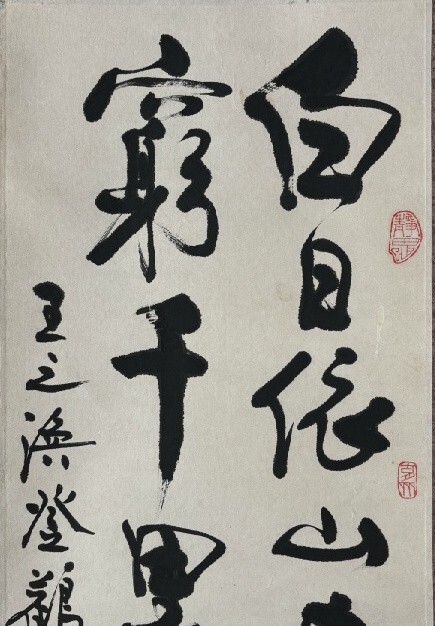 白日依山
窮千里
王之渙登鸛